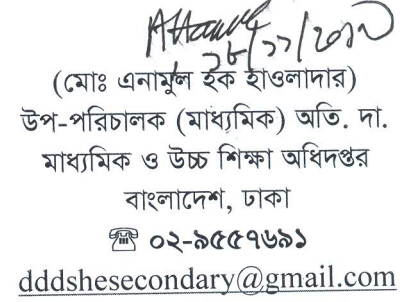 ২৮/১১/২০১০
(মোঃ এনামুল হক হাওলাদার)
উপ-পরিচালক (মাধ্যমিক) অতি. দা.
মাধ্যমিক ও উচ্চ শিক্ষা অধিদপ্তর
বাংলাদেশ, ঢাকা
☎ ০২-৯৫৫৭৬৯১
dddshesecondary@gmail.com